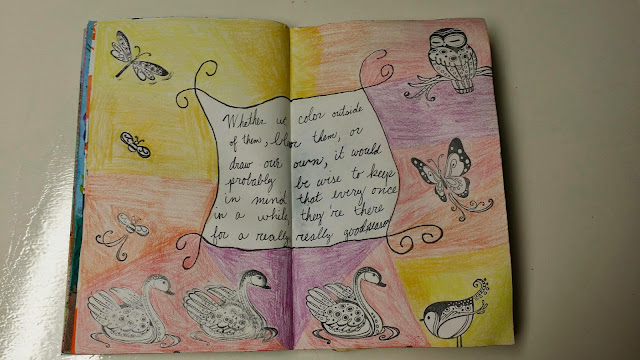 Whether we color outside
of them, blur them, or
draw our own, it would
probably be wise to keep
in mind that every once
in a while they're there
for a really really good reason